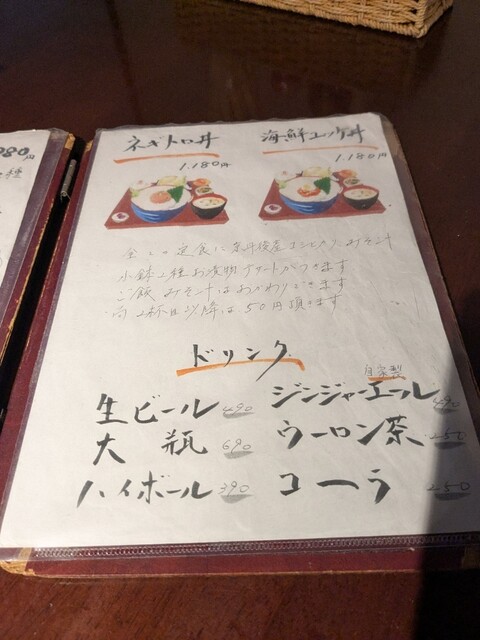 980円
種
ネギトロ丼
海鮮ユッケ丼
1.180円
1.180円
全ての定食に京丹後産コシヒカリ みそ汁
小鉢2種 お漬物 デザートがつきます
ご飯 みそ汁はおかわりできます
尚 2杯目以降は50円頂きます
ドリンク
生ビール 490
大瓶 690
ハイボール 390
自家製
ジンジャーエール 490
ウーロン茶 250
コーラ 250